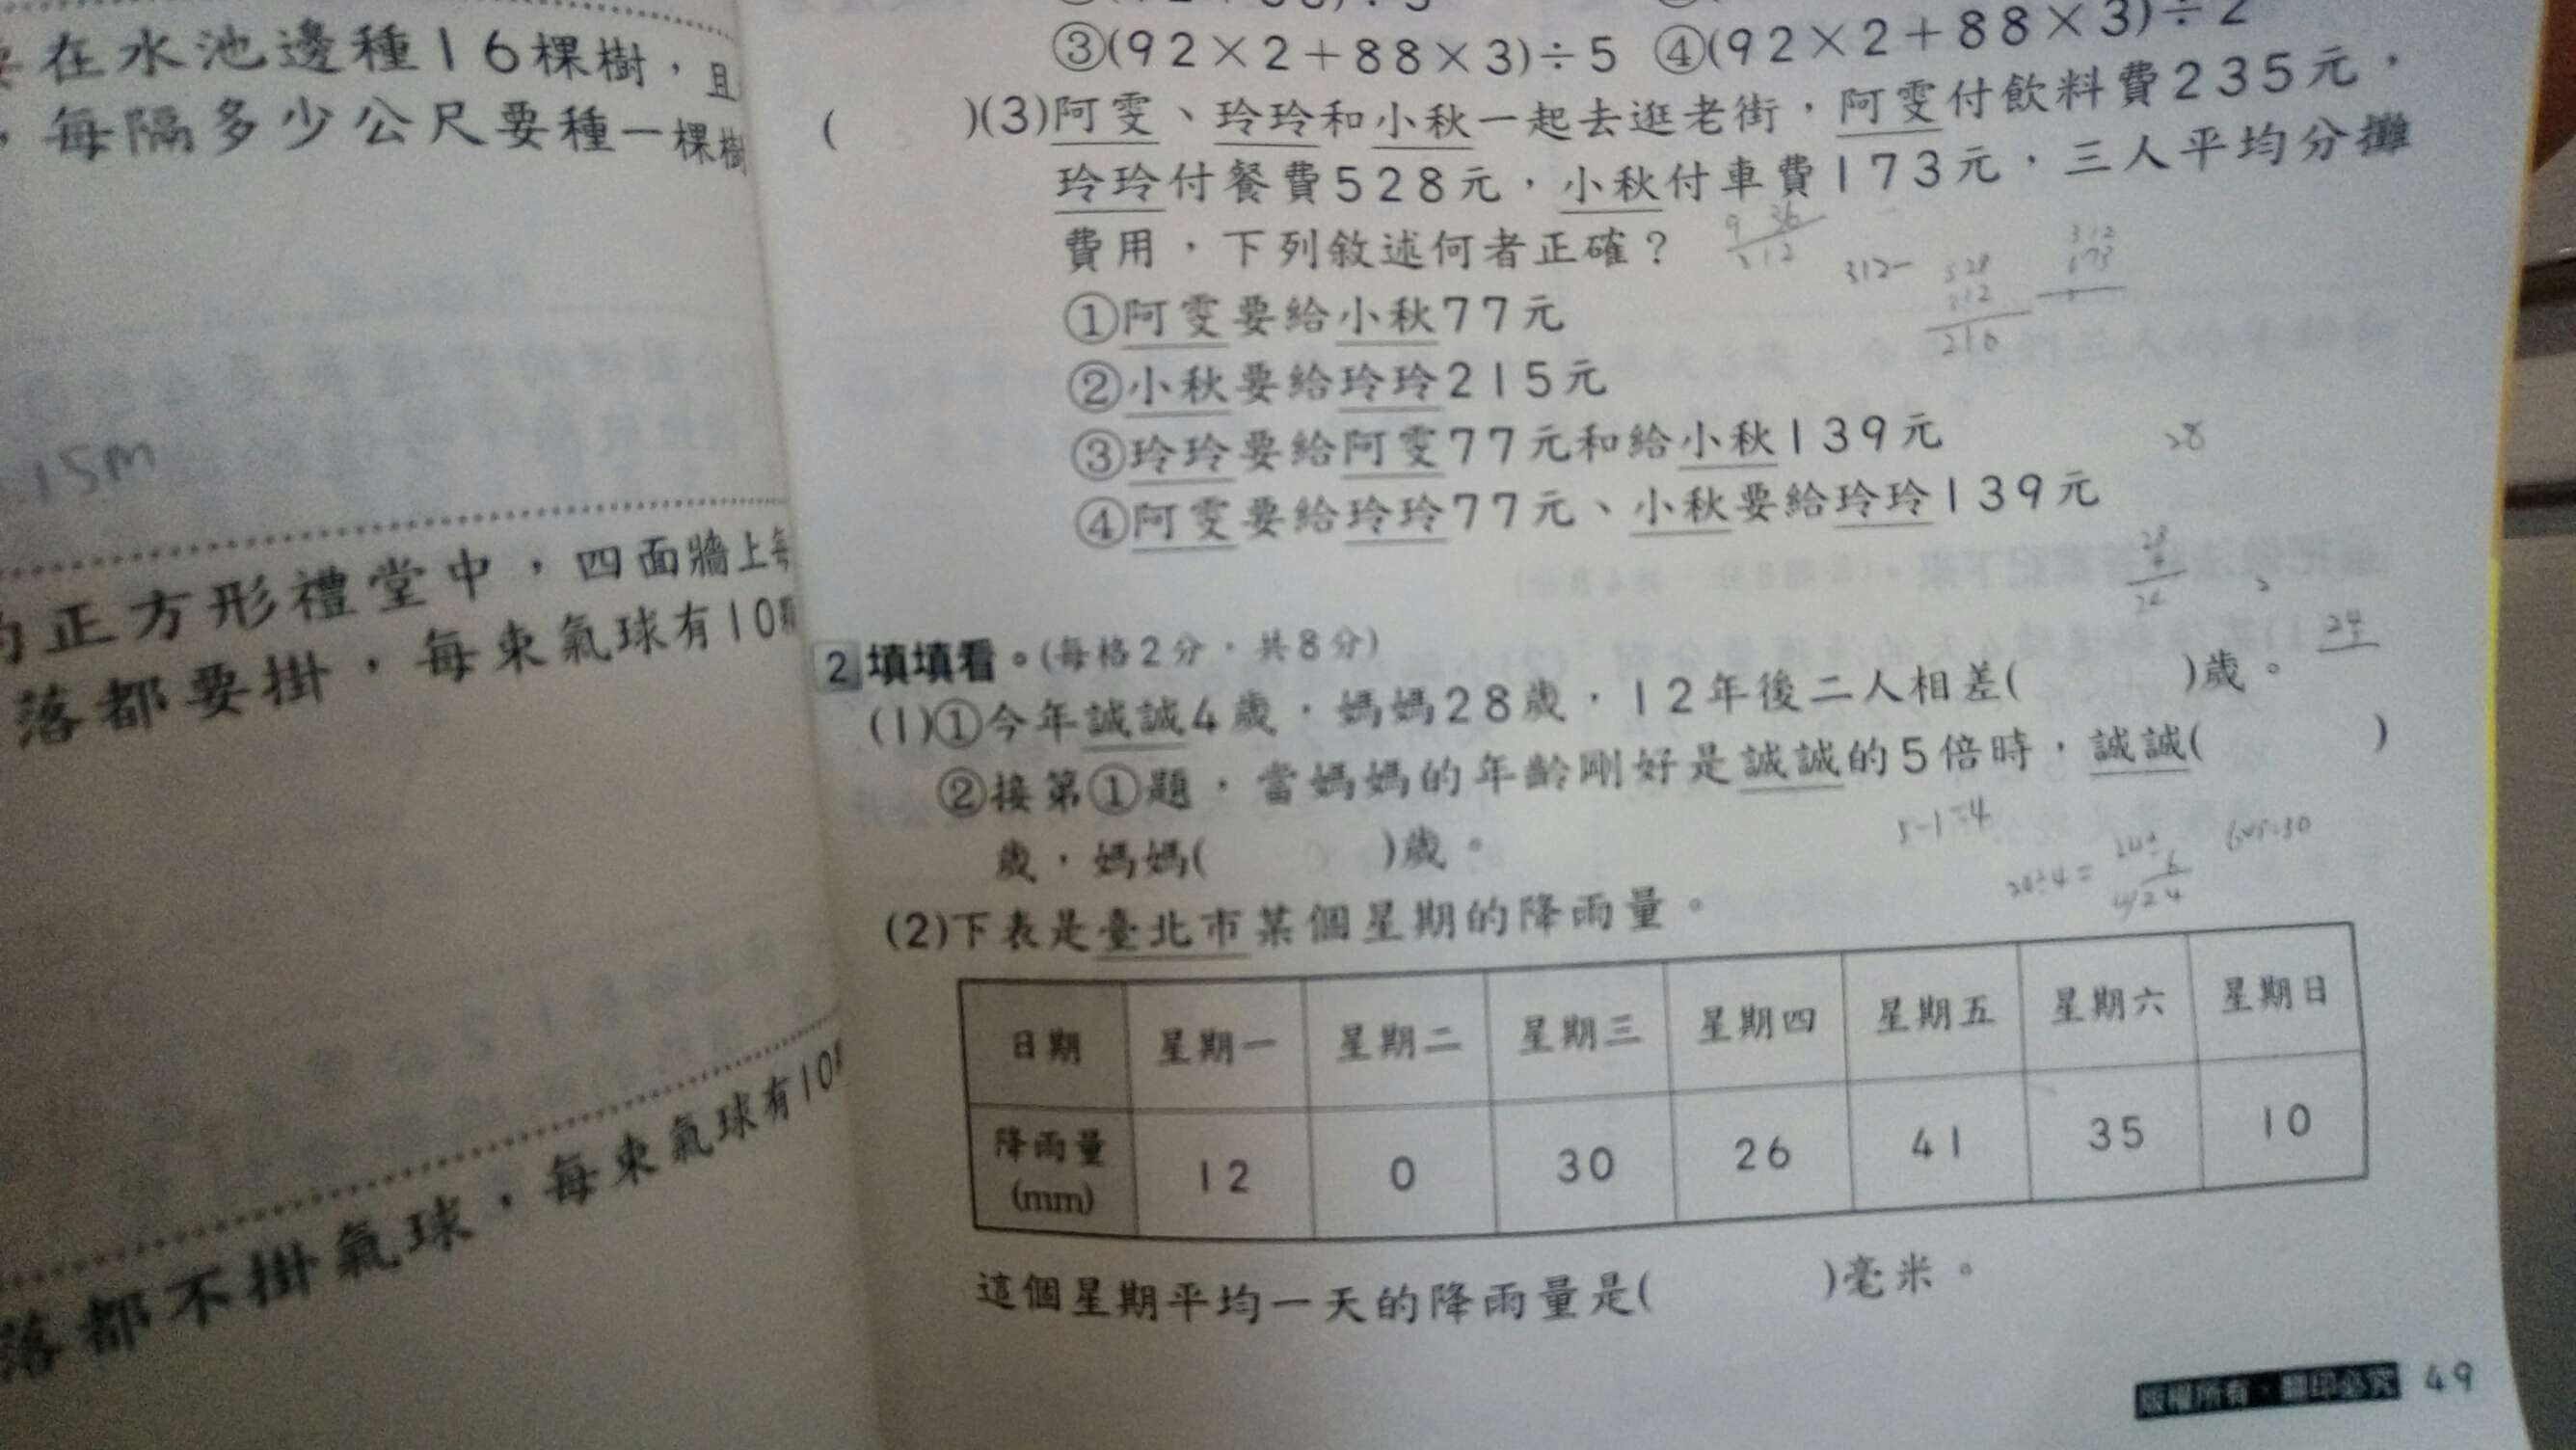 在水池邊種16棵樹，且
，每隔多少公尺要種一棵樹
15m
正方形禮堂中，四面牆上每
落都要掛，每束氣球有10顆
落都不掛氣球，每束氣球有10
③(92×2+88×3)÷5 ④(92×2+88×3)÷2
( )(3)阿雯、玲玲和小秋一起去逛老街，阿雯付飲料費235元，
玲玲付餐費528元，小秋付車費173元，三人平均分攤
費用，下列敘述何者正確？
①阿雯要給小秋77元
②小秋要給玲玲215元
③玲玲要給阿雯77元和給小秋139元
④阿雯要給玲玲77元、小秋要給玲玲139元
312-
528
312
216
312
173
28
24
2 填填看。(每格2分，共8分)
(1)①今年誠誠4歲，媽媽28歲，12年後二人相差( )歲。
②接第①題，當媽媽的年齡剛好是誠誠的5倍時，誠誠( )
歲，媽媽( )歲。
5-1=4
6×5=30
(2)下表是臺北市某個星期的降雨量。
日期 星期一 星期二 星期三 星期四 星期五 星期六 星期日
降雨量(mm) 12 0 30 26 41 35 10
這個星期平均一天的降雨量是( )毫米。
版權所有・翻印必究 49